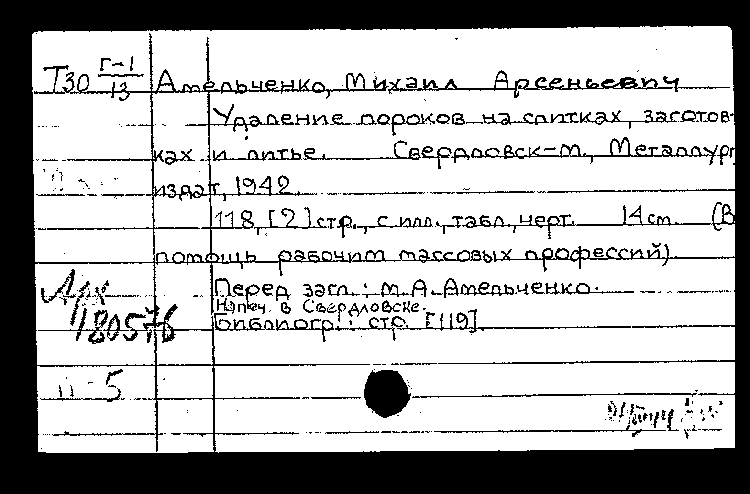 Т30 Г-1/13 Амельченко, Михаил Арсеньевич
Удаление пороков на слитках, заготов-
ках и литье. Свердловск-М., Металлург
издат, 1942.
118, [2] стр., с илл., табл., черт. 14 см. (В
помощь рабочим массовых профессий).
Перед загл.: М.А. Амельченко.
Напеч. в Свердловске.
Библиогр.: стр. [119].
Арх
180576
п-5